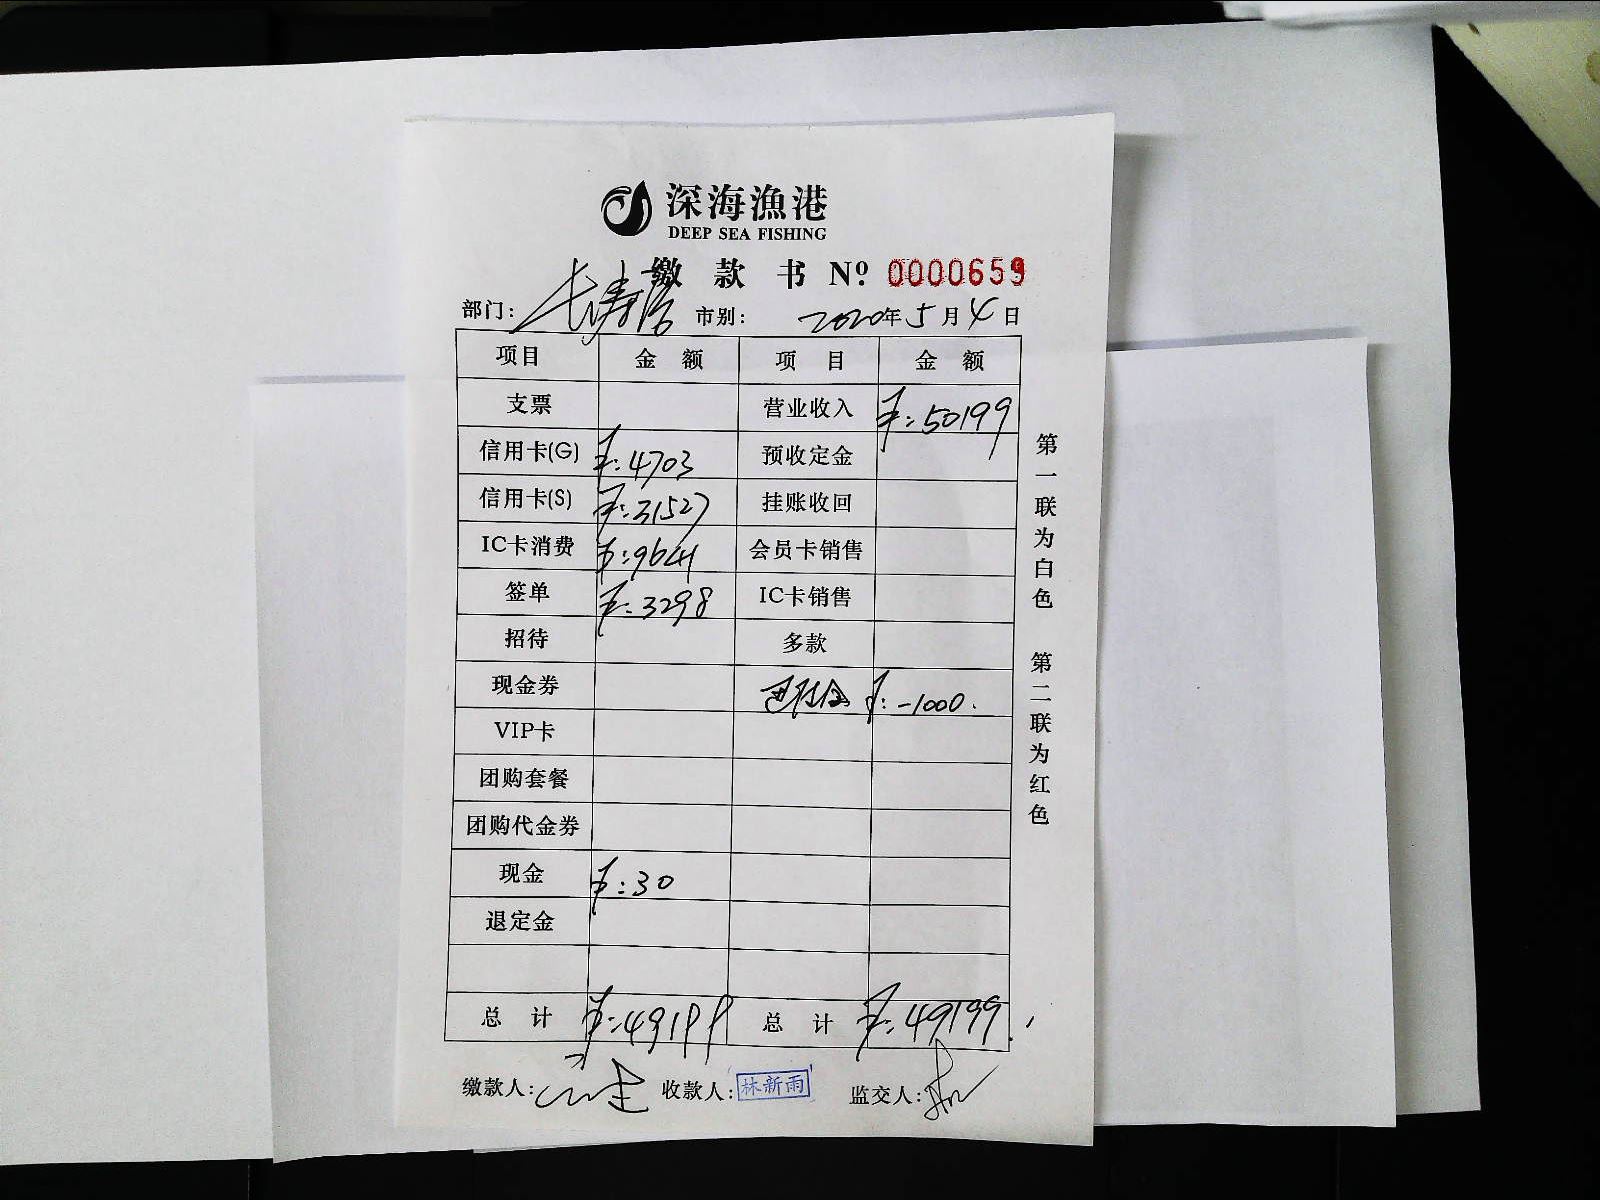 深海漁港
DEEP SEA FISHING
缴 款 书 Nº. 0000659
部门: 长寿店 市别: 2020年5月4日
项目 金 额 项 目 金 额
支票 营业收入 ¥:50199
信用卡(G) ¥:4703 预收定金
信用卡(S) ¥:31527 挂账收回
IC卡消费 ¥:9641 会员卡销售
签单 ¥:3298 IC卡销售
招待 多款
现金券 退订金 ¥:-1000.
VIP卡
团购套餐
团购代金券
现金 ¥:30
退定金
总 计 ¥:49199 总 计 ¥:49199.
缴款人: 收款人: 林新雨 监交人:
第一联为白色 第二联为红色